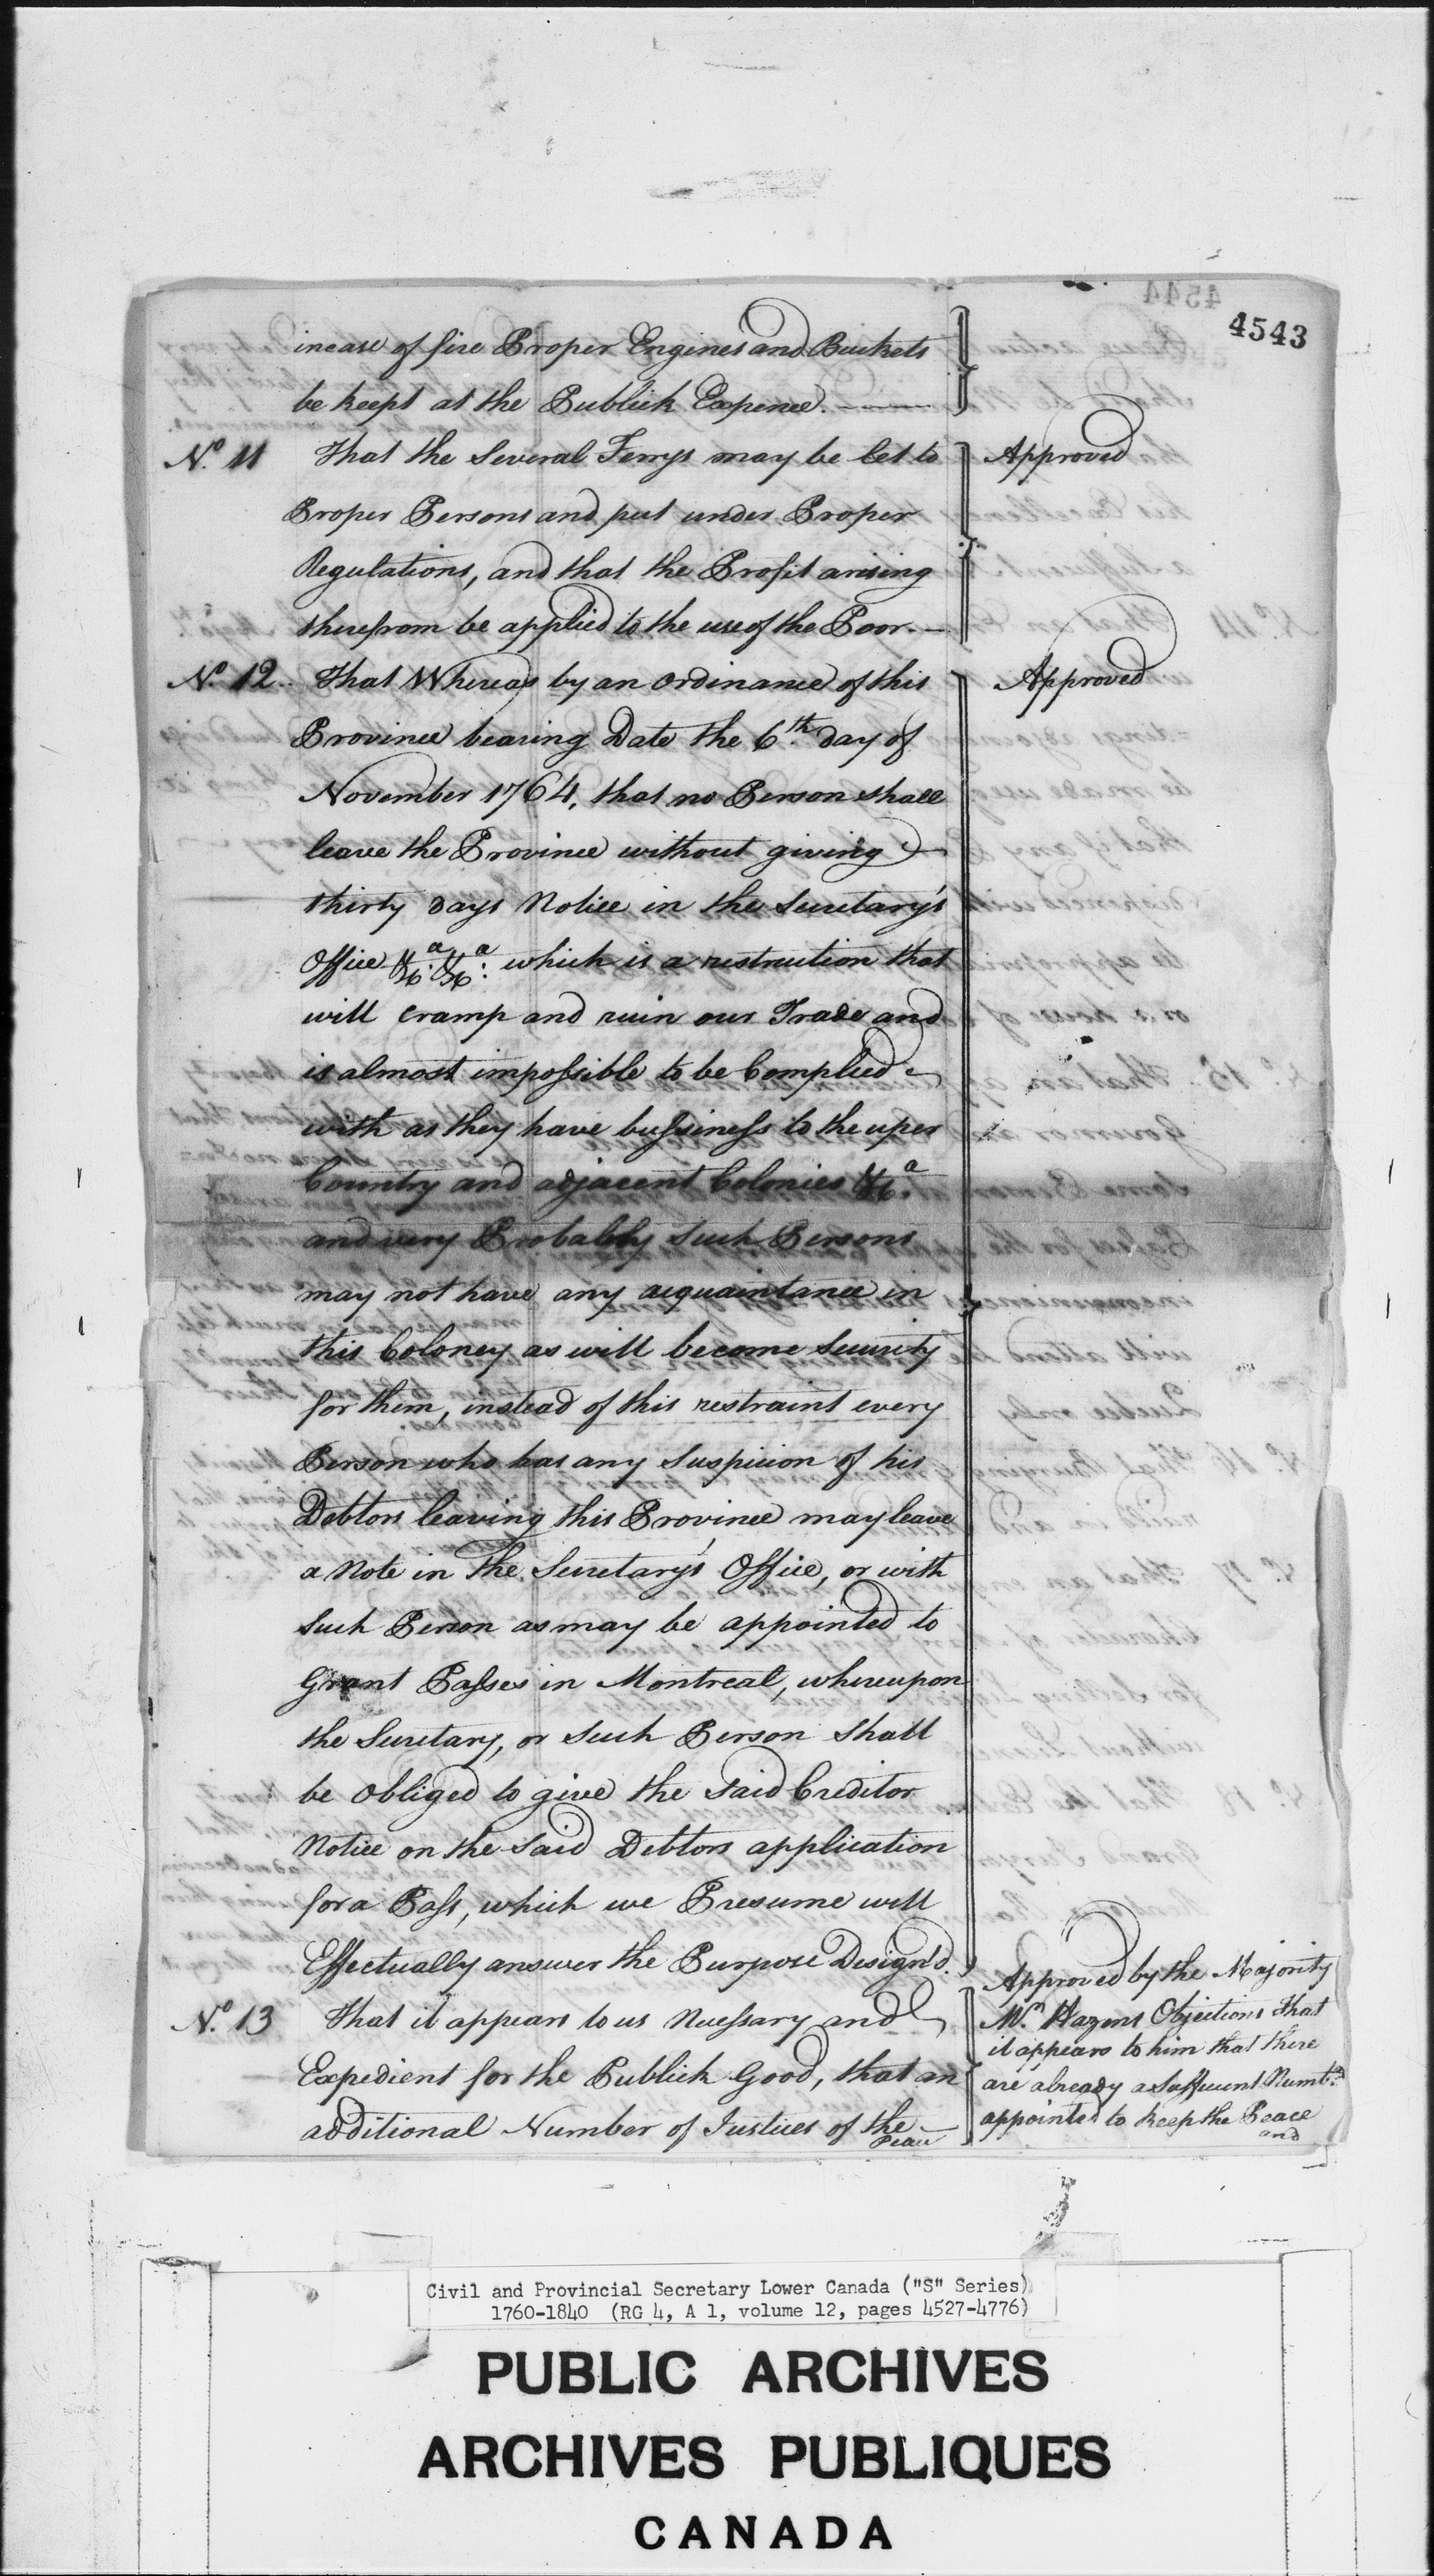 4543
incase of fire Proper Engines and Buckets
be keept at the Publick Expence.
No. 11 That the Several Ferrys may be let to
Proper Persons and put under Proper
Regulations, and that the Profit arising
therefrom be applied to the use of the Poor.
Approved
No. 12 That Whereas by an Ordinance of this
Province bearing Date the 6th. day of
November 1764, that no Person shall
leave the Province without giving
thirty days Notice in the Secretary's
Office &ca. &ca: which is a restruction that
will cramp and ruin our Trade and
is almost impossible to be Complied
with as they have bussiness to the uper
Country and adjacent Colonies &ca.
and very Probably Such Persons
may not have any acquaintance in
this Coloney as will become Security
for them, instead of this restraint every
Person who has any Suspicion of his
Debtors leaving this Province may leave
a Note in the Secretary's Office, or with
Such Person as may be appointed to
Grant Passes in Montreal, whereupon
the Secretary, or Such Person Shall
be Obliged to give the said Creditor
Notice on the said Debtors application
for a Pass, which we Presume will
Effectually answer the Purpose Design'd.
Approved
No. 13 That it appears to us Necessary and
Expedient for the Publick Good, that an
additional Number of Justices of the
Peace
Approved by the Majority
Mr. Hazens Objections that
it appears to him that there
are already a Sufficient Numbr.
appointed to keep the Peace
and
Civil and Provincial Secretary Lower Canada ("S" Series)
1760-1840 (RG 4, A 1, volume 12, pages 4527-4776)
PUBLIC ARCHIVES
ARCHIVES PUBLIQUES
CANADA